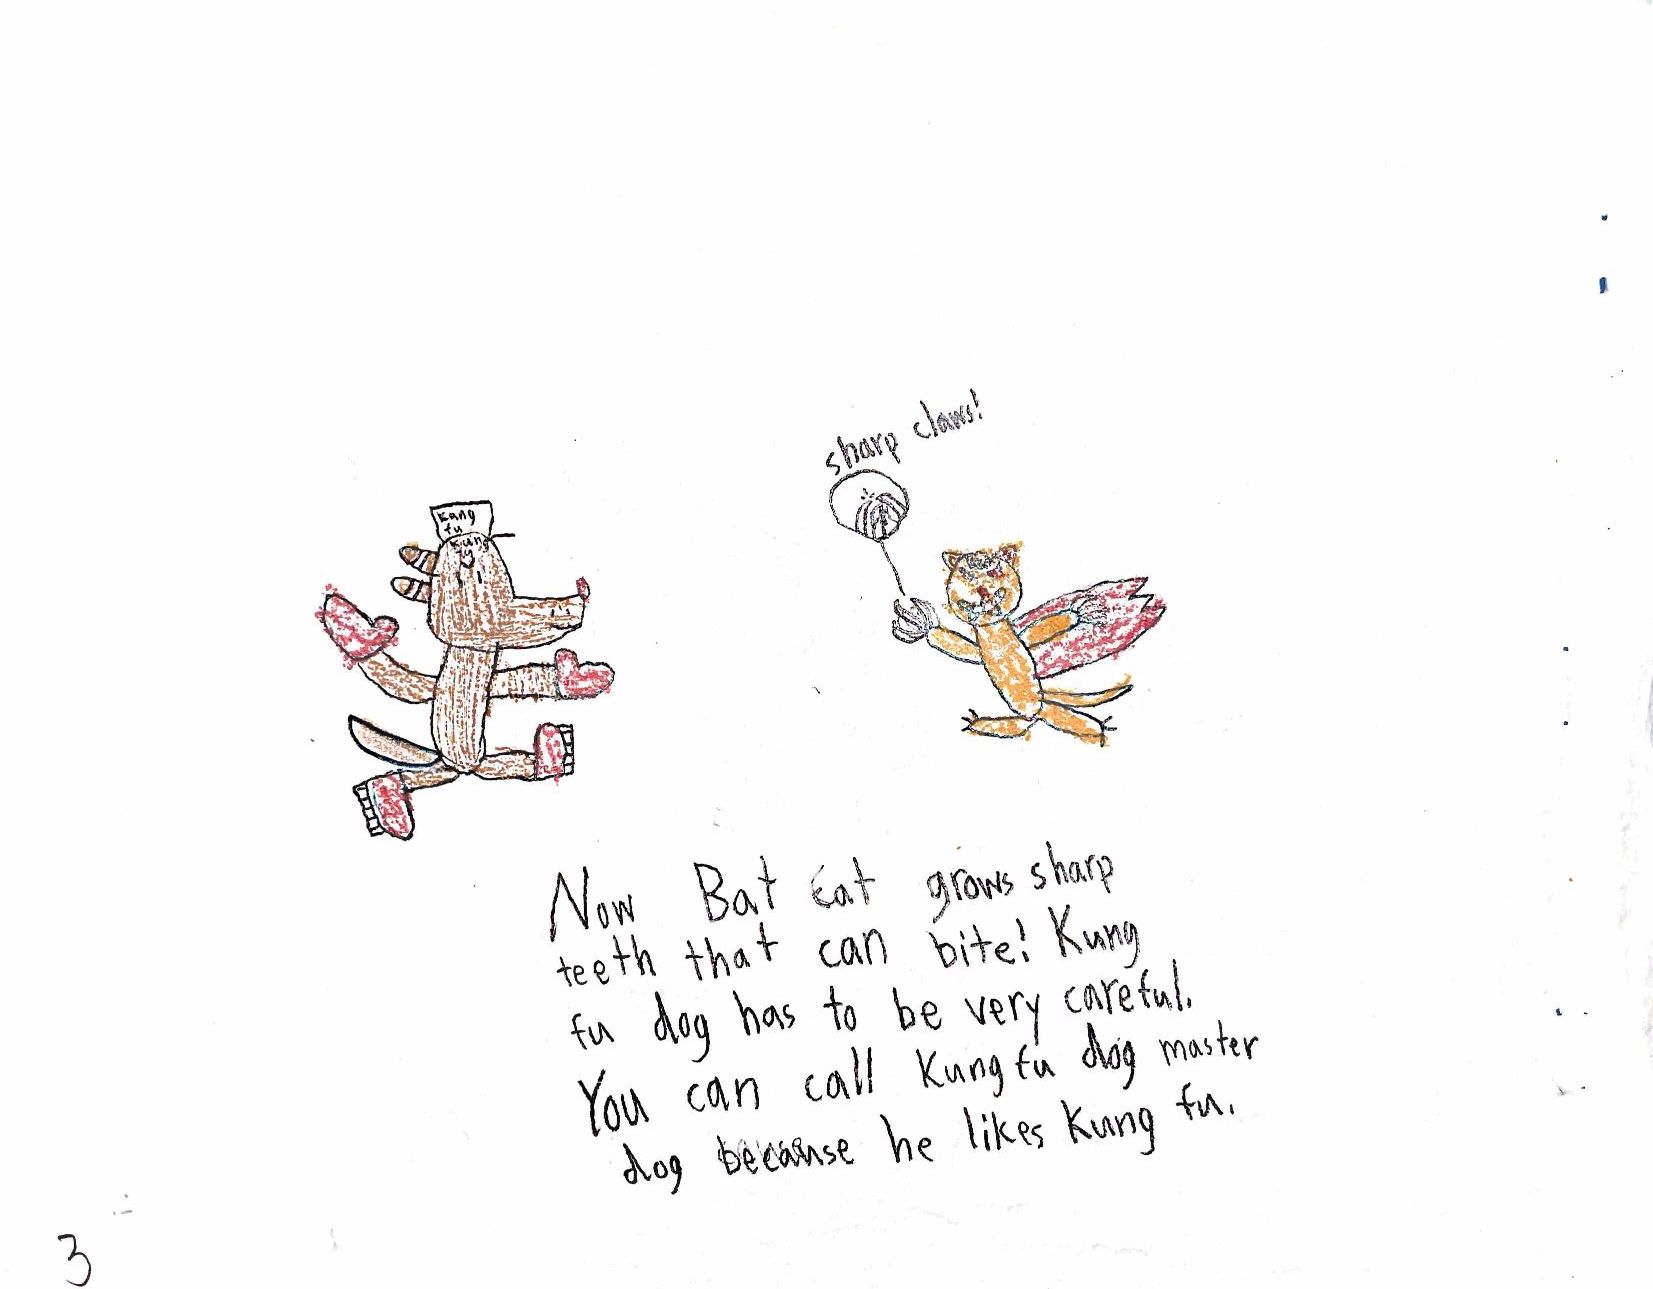 sharp claws!
Kung
fu
Kung
Now Bat Cat grows sharp
teeth that can bite! Kung
fu dog has to be very careful.
You can call Kung fu dog master
dog because he likes Kung fu.
3